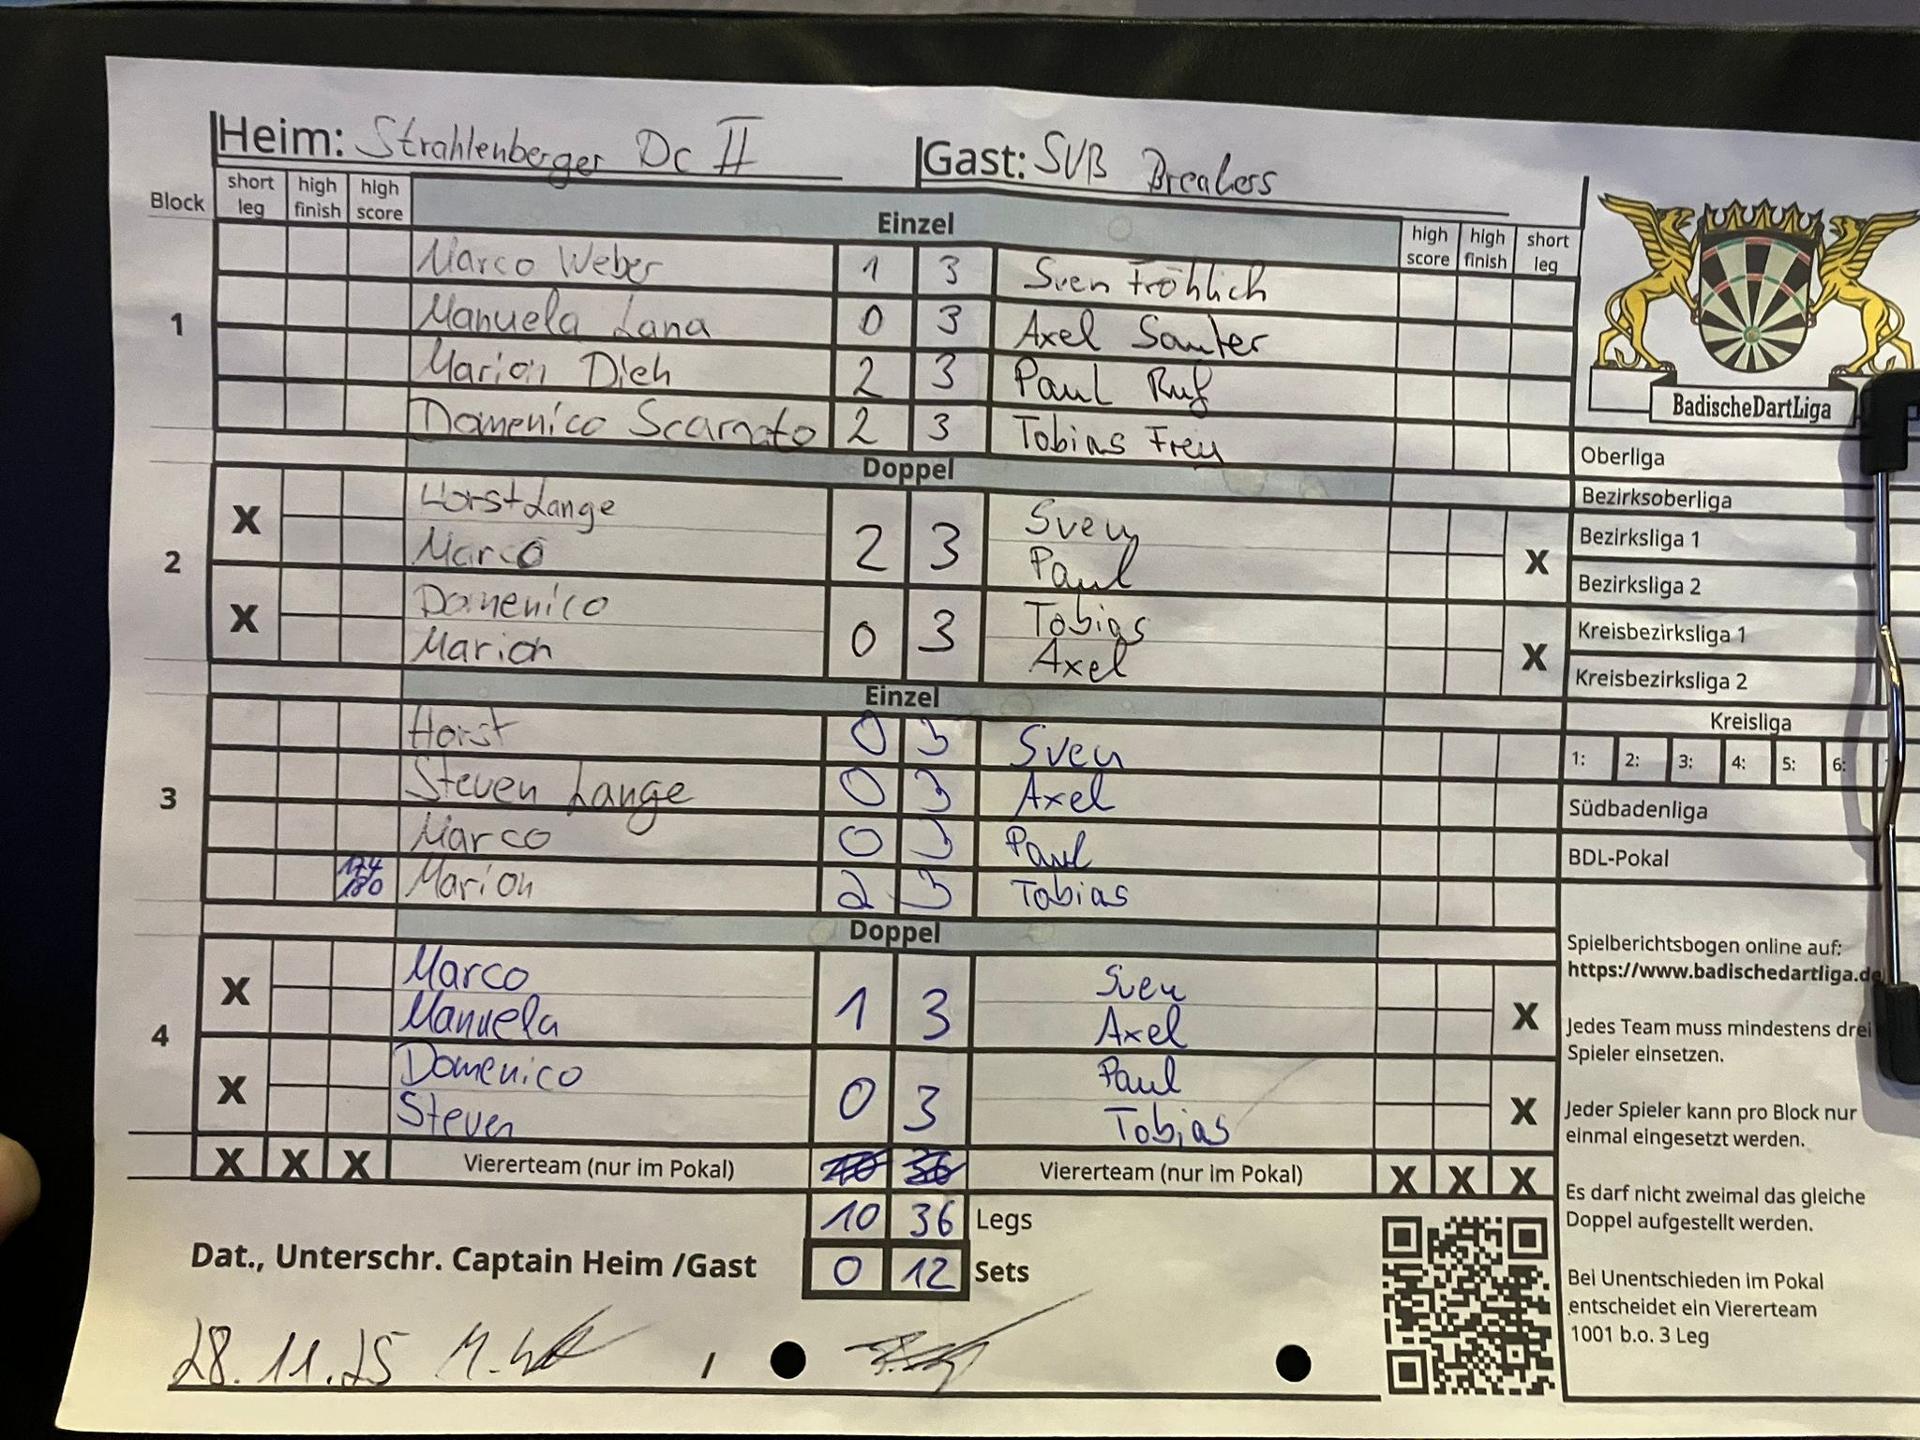 Heim: Strahlenberger Dc II Gast: SVB Breakers
Block short leg high finish high score Einzel high score high finish short leg
1
Marco Weber 1 3 Sven Fröhlich
Manuela Lana 0 3 Axel Sauter
Marion Dieh 2 3 Paul Ruf
Domenico Scarnato 2 3 Tobias Frey
Doppel
2
X Horst Lange 2 3 Sven X
Marco Paul
X Domenico 0 3 Tobias X
Marion Axel
Einzel
3
Horst 0 3 Sven
Steven Lange 0 3 Axel
Marco 0 3 Paul
174
180 Marion 2 3 Tobias
Doppel
4
X Marco 1 3 Sven X
Manuela Axel
X Domenico 0 3 Paul X
Steven Tobias
X X X Viererteam (nur im Pokal) Viererteam (nur im Pokal) X X X
10 36 Legs
0 12 Sets
Dat., Unterschr. Captain Heim /Gast
28.11.25 /
BadischeDartLiga
Oberliga
Bezirksoberliga
Bezirksliga 1
Bezirksliga 2
Kreisbezirksliga 1
Kreisbezirksliga 2
Kreisliga
1: 2: 3: 4: 5: 6:
Südbadenliga
BDL-Pokal
Spielberichtsbogen online auf:
https://www.badischedartliga.de
Jedes Team muss mindestens drei
Spieler einsetzen.
Jeder Spieler kann pro Block nur
einmal eingesetzt werden.
Es darf nicht zweimal das gleiche
Doppel aufgestellt werden.
Bei Unentschieden im Pokal
entscheidet ein Viererteam
1001 b.o. 3 Leg